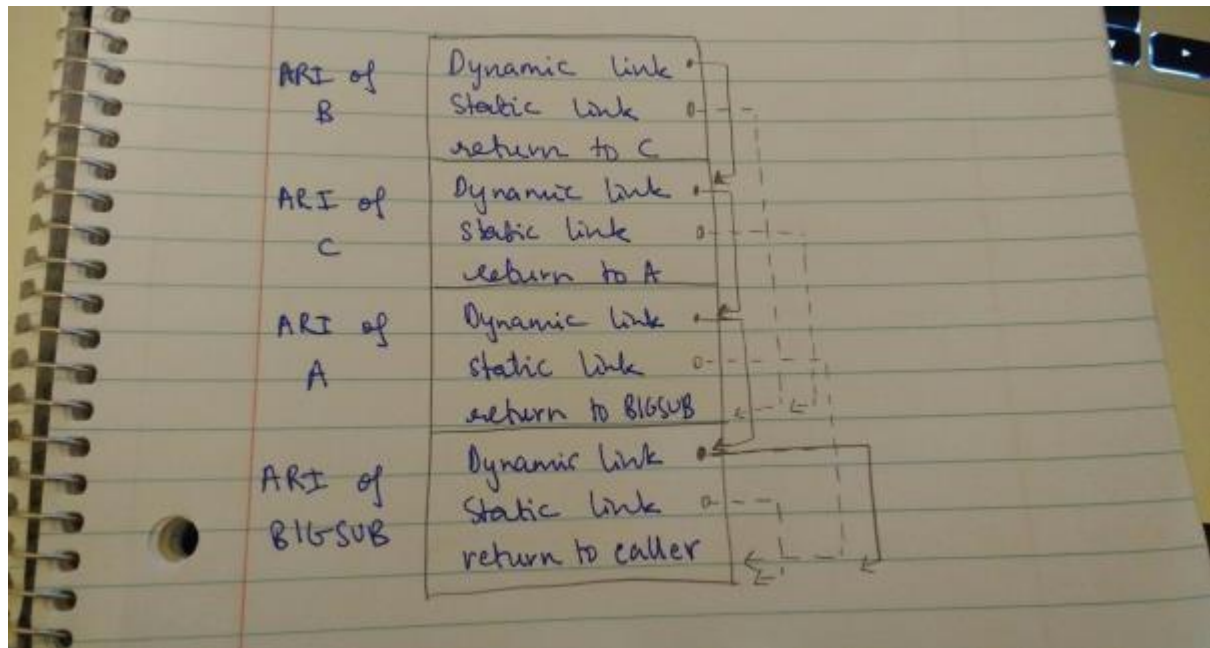 ARI of
B
Dynamic link
Static link
return to C
ARI of
C
Dynamic link
Static link
return to A
ARI of
A
Dynamic link
static link
return to BIGSUB
ARI of
BIGSUB
Dynamic link
Static link
return to caller